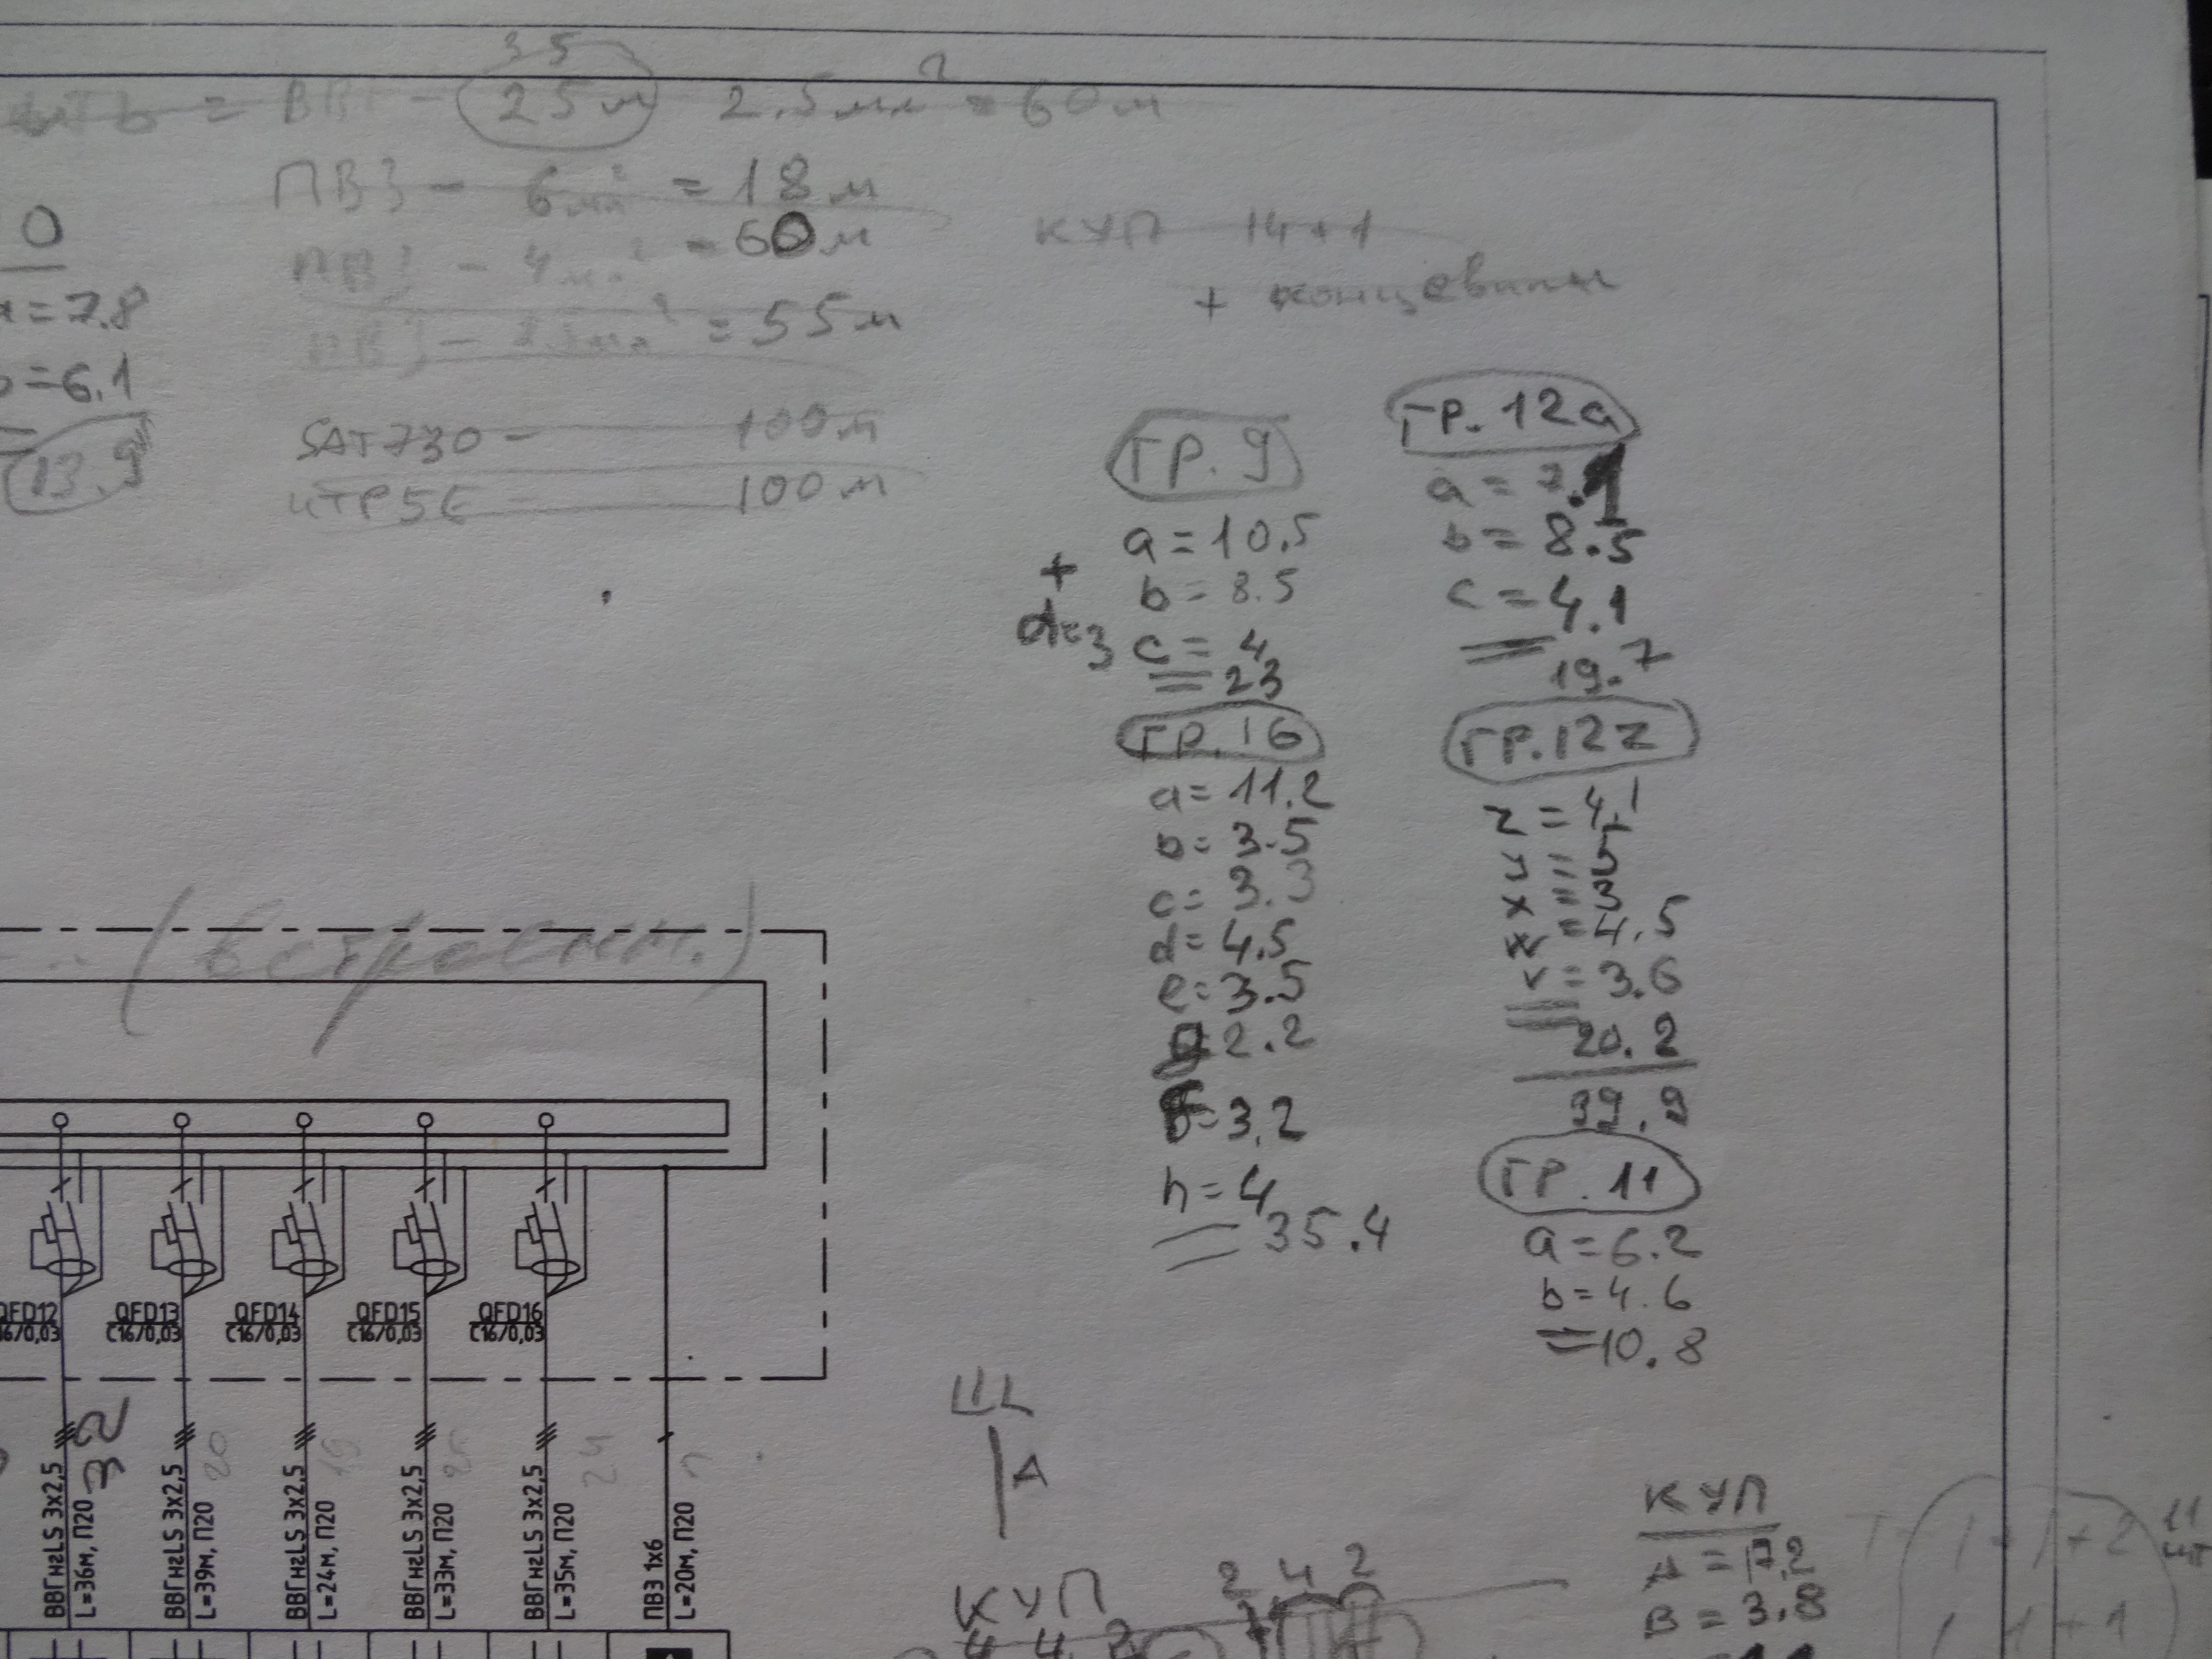 ВВГ - 25м 2.5мм² = 60м
35
ПВ3 - 6мм² = 18м
ПВ3 - 4мм² = 60м
ПВ3 - 2.5мм² = 55м
SAT730 - 100м
UTP5E - 100м
КУП 14+1
+ концевики
0
a=7.8
b=6.1
=
13.9
ГР. 9
a=10.5
b=8.5
c=4
=23
+
d=3
ГР. 16
a=11.2
b=3.5
c=3.3
d=4.5
e=3.5
=2.2
=3.2
h=4
=35.4
ГР. 12a
a=7.1
b=8.5
c=4.1
=19.7
ГР. 12z
z=4.1
y=5
x=3
=4.5
v=3.6
=20.2
39.9
ГР. 11
a=6.2
b=4.6
=10.8
(встроенн.)
QFD12
C16/0,03
QFD13
C16/0,03
QFD14
C16/0,03
QFD15
C16/0,03
QFD16
C16/0,03
ВВГнгLS 3x2,5
L=36м, П20
32
ВВГнгLS 3x2,5
L=39м, П20
20
ВВГнгLS 3x2,5
L=24м, П20
19
ВВГнгLS 3x2,5
L=33м, П20
ВВГнгLS 3x2,5
L=35м, П20
24
ПВ3 1x6
L=20м, П20
A
КУП
4 4 2
2 4 2
КУП
A = 7.2
B = 3.8
1+1+2
1+1